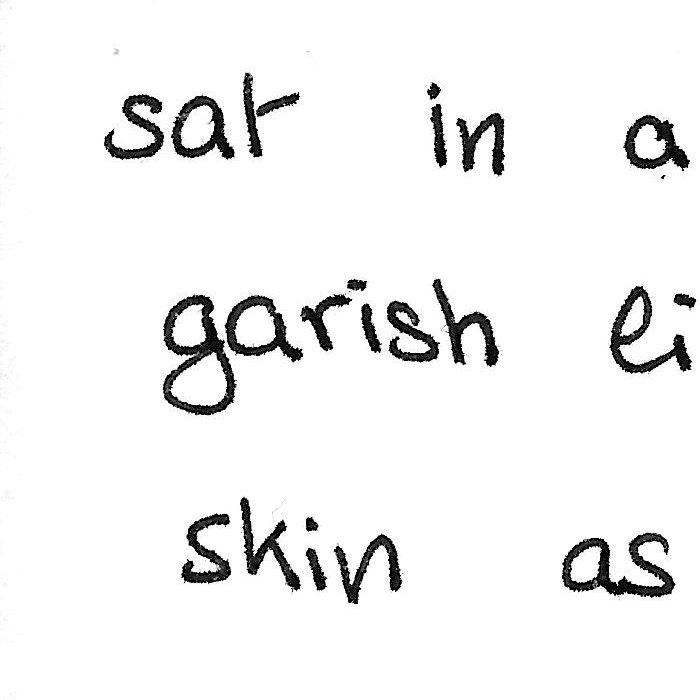 sat in a
garish li
skin as